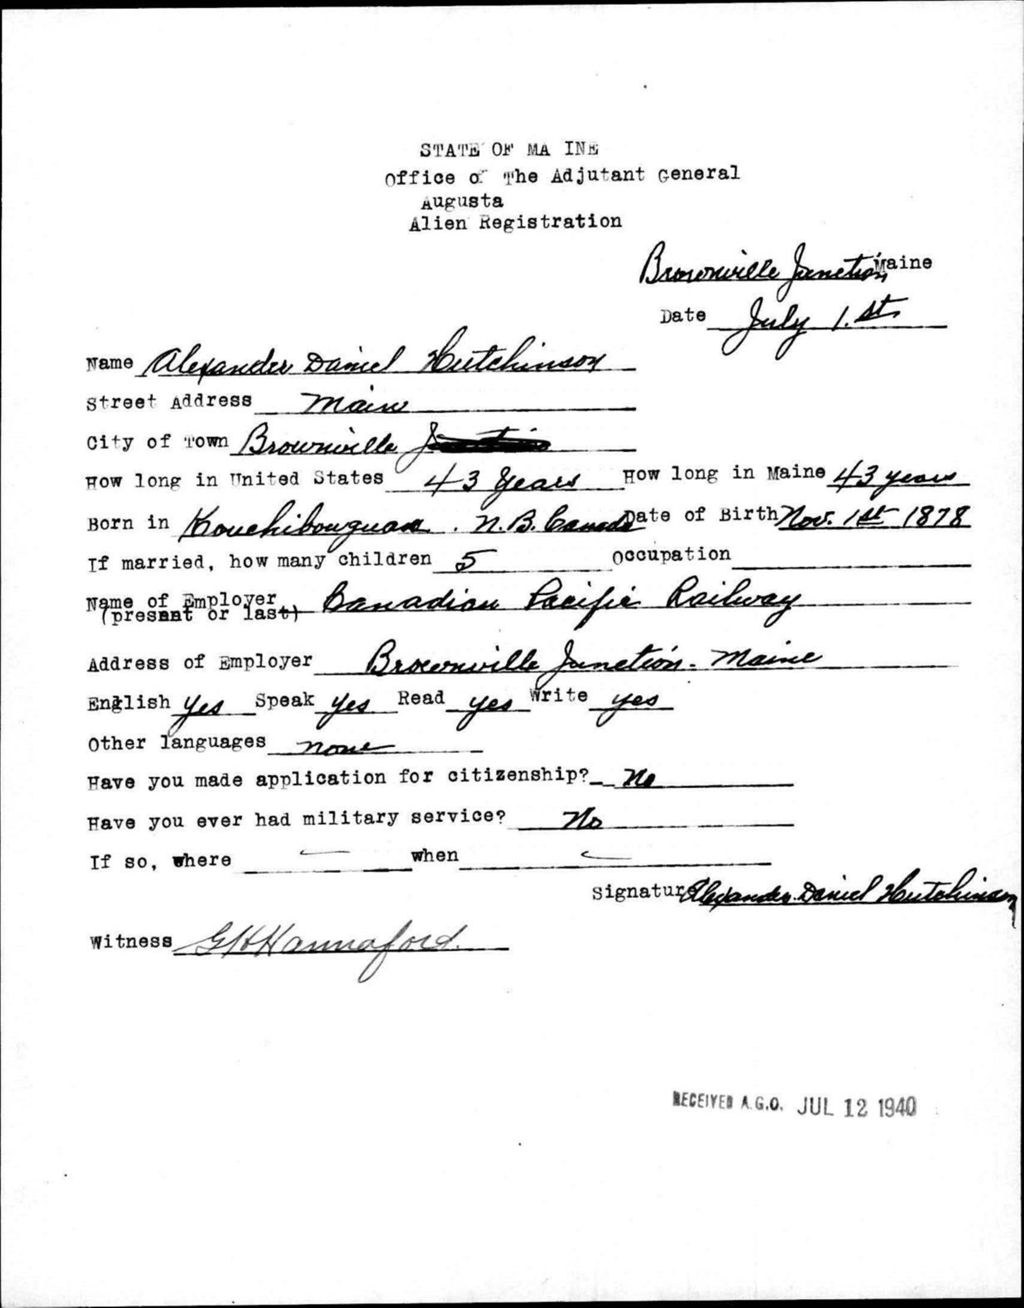 STATE OF MAINE
Office of The Adjutant General
Augusta
Alien Registration
Brownville Junction Maine
Date July 1.st
Name Alexander Daniel Hutchinson
Street Address Main
City of Town Brownville
How long in United States 43 Years How long in Maine 43 years
Born in Kouchibouguac. N.B. Canada Date of Birth Nov. 1st 1878
If married, how many children 5 Occupation
Name of Employer Canadian Pacific Railway
(present or last)
Address of Employer Brownville Junction. Maine
English Yes Speak Yes Read yes Write yes
Other languages none
Have you made application for citizenship? No
Have you ever had military service? No
If so, where when
Signature Alexander Daniel Hutchinson
Witness G H Hannaford.
RECEIVED A.G.O. JUL 12 1940